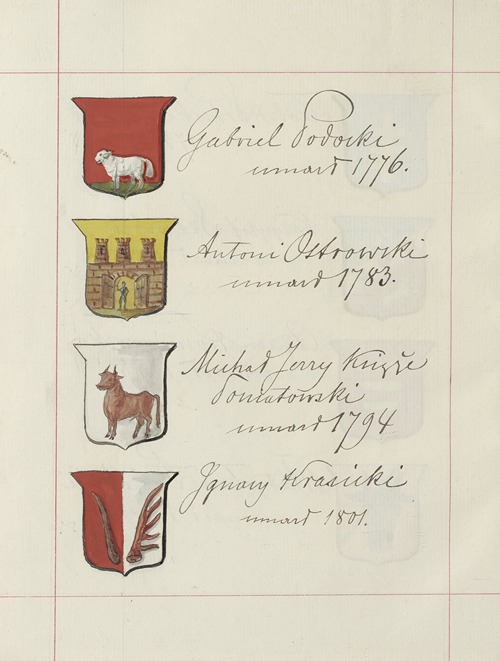 Gabriel Podoski
umarł 1776.
Antoni Ostrowski
umarł 1783.
Michał Jerzy Książe
Poniatowski
umarł 1794
Ignacy Krasicki
umarł 1801.